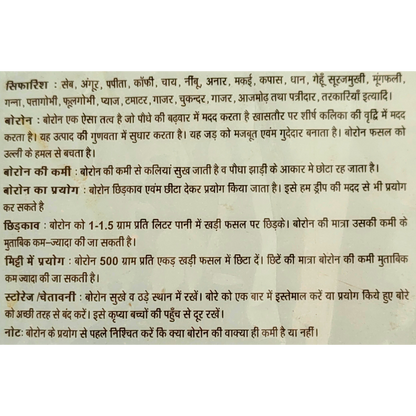 सिफारिश : सेब, अंगूर, पपीता, कॉफी, चाय, नींबू, अनार, मकई, कपास, धान, गेहूँ सूरजमुखी, मूंगफली,
गन्ना, पत्तागोभी, फूलगोभी, प्याज, टमाटर, गाजर, चुकन्दर, गाजर, आजमोढ़ तथा पत्रीदार, तरकारियाँ इत्यादि।
बोरोन : बोरोन एक ऐसा तत्व है जो पौधे की बढ़वार में मदद करता है खासतौर पर शीर्ष कलिका की वृद्धि में मदद
करता है। यह उत्पाद की गुणवता में सुधार करता है। यह जड़ को मजबूत एवंम गुदेदार बनाता है। बोरोन फसल को
उल्ली के हमल से बचता है।
बोरोन की कमी : बोरोन की कमी से कलियां सुख जाती है व पौधा झाड़ी के आकार मे छोटा रह जाता है।
बोरोन का प्रयोग : बोरोन छिड़काव एवंम छीटा देकर प्रयोग किया जाता है। इसे हम ड्रीप की मदद से भी प्रयोग
कर सकते है
छिड़काव : बोरोन को 1-1.5 ग्राम प्रति लिटर पानी में खड़ी फसल पर छिड़के। बोरोन की मात्रा उसकी कमी के
मुताबिक कम-ज्यादा की जा सकती है।
मिट्टी में प्रयोग : बोरोन 500 ग्राम प्रति एकड़ खड़ी फसल में छिटा दें। छिटें की मात्रा बोरोन की कमी मुताबिक
कम ज्यादा की जा सकती है।
स्टोरेज /चेतावनी : बोरोन सुखे व ठड़े स्थान में रखें। बोरे को एक बार में इस्तेमाल करें या प्रयोग किये हुए बोरे
को अच्छी तरह से बंद करें। इसे कृप्या बच्चों की पहुँच से दूर रखें।
नोट: बोरोन के प्रयोग से पहले निश्चित करें कि क्या बोरोन की वाक्या ही कमी है या नहीं।